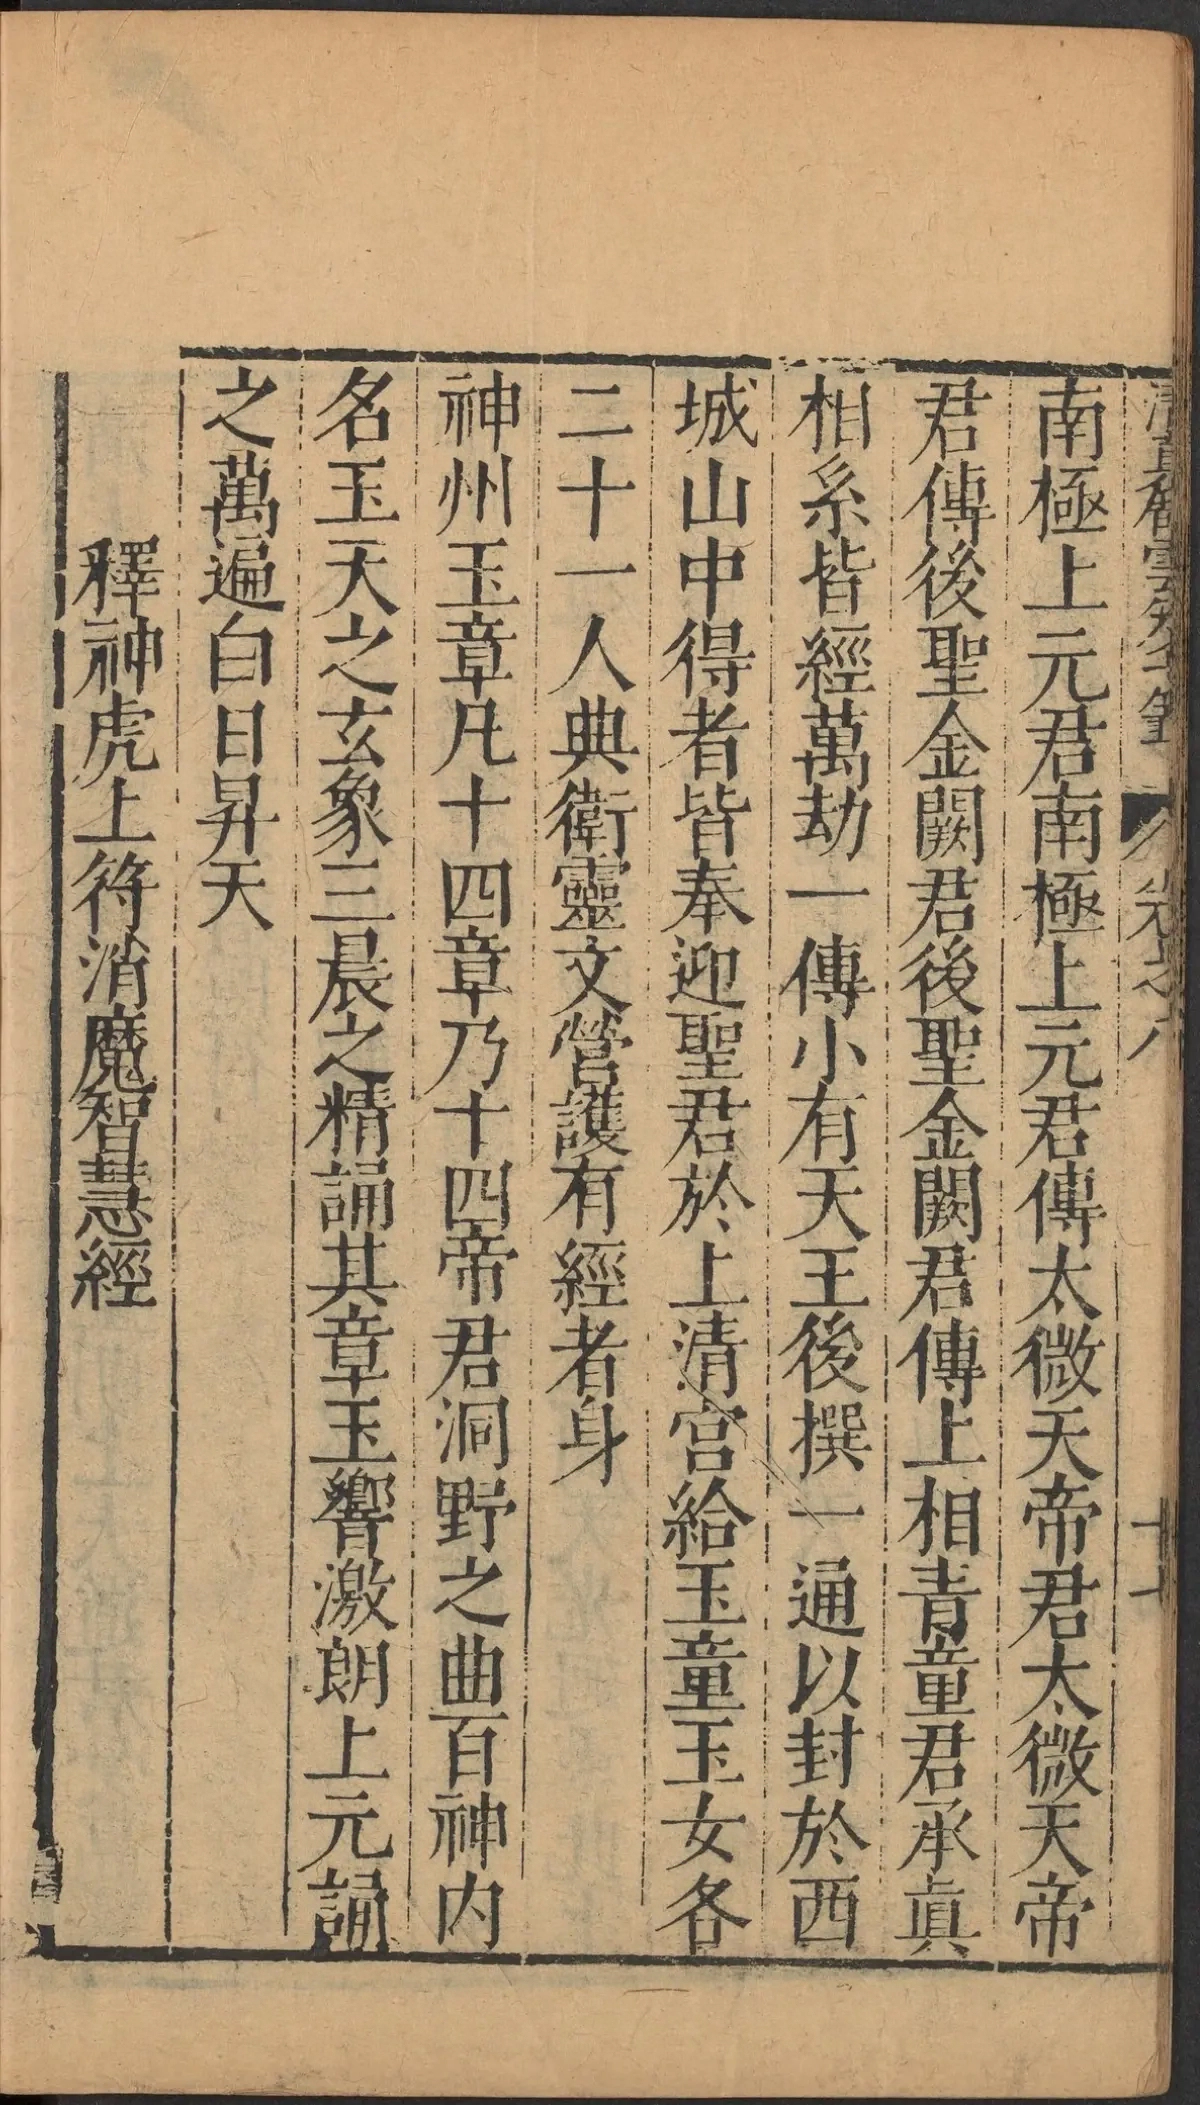 清真館雲笈七籤 卷之八 十七
南極上元君南極上元君傳太微天帝君太微天帝
君傳後聖金闕君後聖金闕君傳上相青童君承眞
相系皆經萬劫一傳小有天王後撰一通以封於西
城山中得者皆奉迎聖君於上清宮給玉童玉女各
二十一人典衛靈文營護有經者身
神州玉章凡十四章乃十四帝君洞野之曲百神内
名玉天之玄象三晨之精誦其章玉響激朗上元誦
之萬遍白日昇天
釋神虎上符消魔智慧經